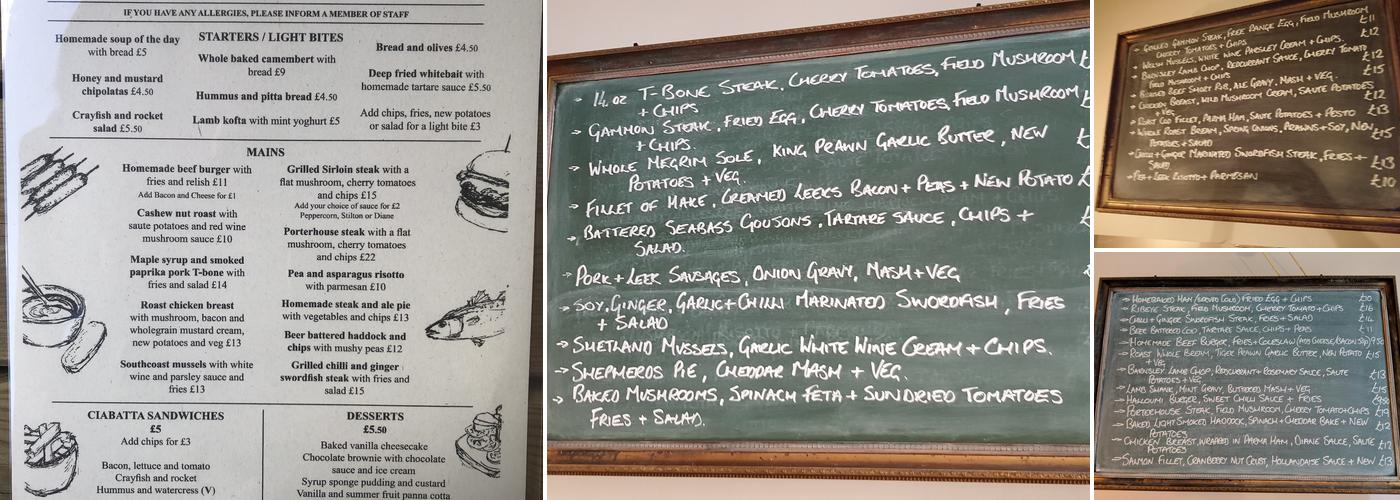 IF YOU HAVE ANY ALLERGIES, PLEASE INFORM A MEMBER OF STAFF
STARTERS / LIGHT BITES
Homemade soup of the day
with bread £5
Honey and mustard
chipolatas £4.50
Crayfish and rocket
salad £5.50
Whole baked camembert with
bread £9
Hummus and pitta bread £4.50
Lamb kofta with mint yoghurt £5
Bread and olives £4.50
Deep fried whitebait with
homemade tartare sauce £5.50
Add chips, fries, new potatoes
or salad for a light bite £3
MAINS
Homemade beef burger with
fries and relish £11
Add Bacon and Cheese for £1
Cashew nut roast with
saute potatoes and red wine
mushroom sauce £10
Maple syrup and smoked
paprika pork T-bone with
fries and salad £14
Roast chicken breast
with mushroom, bacon and
wholegrain mustard cream,
new potatoes and veg £13
Southcoast mussels with white
wine and parsley sauce and
fries £13
Grilled Sirloin steak with a
flat mushroom, cherry tomatoes
and chips £15
Add your choice of sauce for £2
Peppercorn, Stilton or Diane
Porterhouse steak with a flat
mushroom, cherry tomatoes
and chips £22
Pea and asparagus risotto
with parmesan £10
Homemade steak and ale pie
with vegetables and chips £13
Beer battered haddock and
chips with mushy peas £12
Grilled chilli and ginger
swordfish steak with fries and
salad £15
CIABATTA SANDWICHES
£5
Add chips for £3
Bacon, lettuce and tomato
Crayfish and rocket
Hummus and watercress (V)
DESSERTS
£5.50
Baked vanilla cheesecake
Chocolate brownie with chocolate
sauce and ice cream
Syrup sponge pudding and custard
Vanilla and summer fruit panna cotta
14 oz T-BONE STEAK, CHERRY TOMATOES, FIELD MUSHROOM £
+ CHIPS
GAMMON STEAK, FRIED EGG, CHERRY TOMATOES, FIELD MUSHROOM £
+ CHIPS.
WHOLE MEGRIM SOLE, KING PRAWN GARLIC BUTTER, NEW £
POTATOES + VEG.
FILLET OF HAKE, CREAMED LEEKS BACON + PEAS + NEW POTATO £
BATTERED SEABASS GOUJONS, TARTARE SAUCE, CHIPS +
SALAD.
PORK + LEEK SAUSAGES, ONION GRAVY, MASH + VEG
SOY, GINGER, GARLIC + CHILLI MARINATED SWORDFISH, FRIES
+ SALAD
SHETLAND MUSSELS, GARLIC WHITE WINE CREAM + CHIPS.
SHEPHERDS PIE, CHEDDAR MASH + VEG.
BAKED MUSHROOMS, SPINACH FETA + SUNDRIED TOMATOES
FRIES + SALAD.
GRILLED GAMMON STEAK, FREE RANGE EGG, FIELD MUSHROOM £11
CHERRY TOMATOES + CHIPS
WELSH MUSSELS, WHITE WINE PARSLEY CREAM + CHIPS. £12
BARNSLEY LAMB CHOP, REDCURRANT SAUCE, CHERRY TOMATO £12
FIELD MUSHROOM + CHIPS
BEEF SHORT RIB, ALE GRAVY, MASH + VEG. £15
CHICKEN BREAST, MILD MUSHROOM CREAM, SAUTE POTATOES £12
+ VEG
ROAST COD FILLET, PARMA HAM, SAUTE POTATOES + PESTO £13
WHOLE ROAST BREAM, SPRING ONIONS, PRAWNS + SOY, NEW £15
POTATOES + SALAD
GINGER MARINATED SWORDFISH STEAK, FRIES + £13
SALAD
PEA + LEEK RISOTTO + PARMESAN £10
HOMEBAKED HAM (SERVED COLD) FRIED EGG + CHIPS £10
RIBEYE STEAK, FIELD MUSHROOM, CHERRY TOMATO + CHIPS £16
CHILLI + GINGER SWORDFISH STEAK, FRIES + SALAD £14
BEER BATTERED COD, TARTARE SAUCE, CHIPS + PEAS £11
HOMEMADE BEEF BURGER, FRIES + COLESLAW (ADD CHEESE, BACON 50p) 9.50
ROAST WHOLE BREAM, TIGER PRAWN GARLIC BUTTER, NEW POTATO £15
+ VEG
BARNSLEY LAMB CHOP, REDCURRANT + ROSEMARY SAUCE, SAUTE £13
POTATOES + VEG
LAMB SHANK, MINT GRAVY, BUTTERED MASH + VEG £15
HALLOUMI BURGER, SWEET CHILLI SAUCE + FRIES £9.50
PORTERHOUSE STEAK, FIELD MUSHROOM, CHERRY TOMATO + CHIPS £19
BAKED LIGHT SMOKED HADDOCK, SPINACH + CHEDDAR BAKE + NEW £12
POTATOES
CHICKEN BREAST, WRAPPED IN PARMA HAM, DIANE SAUCE, SAUTE £12
POTATOES
SALMON FILLET, CRANBERRY NUT CRUST, HOLLANDAISE SAUCE + NEW £13